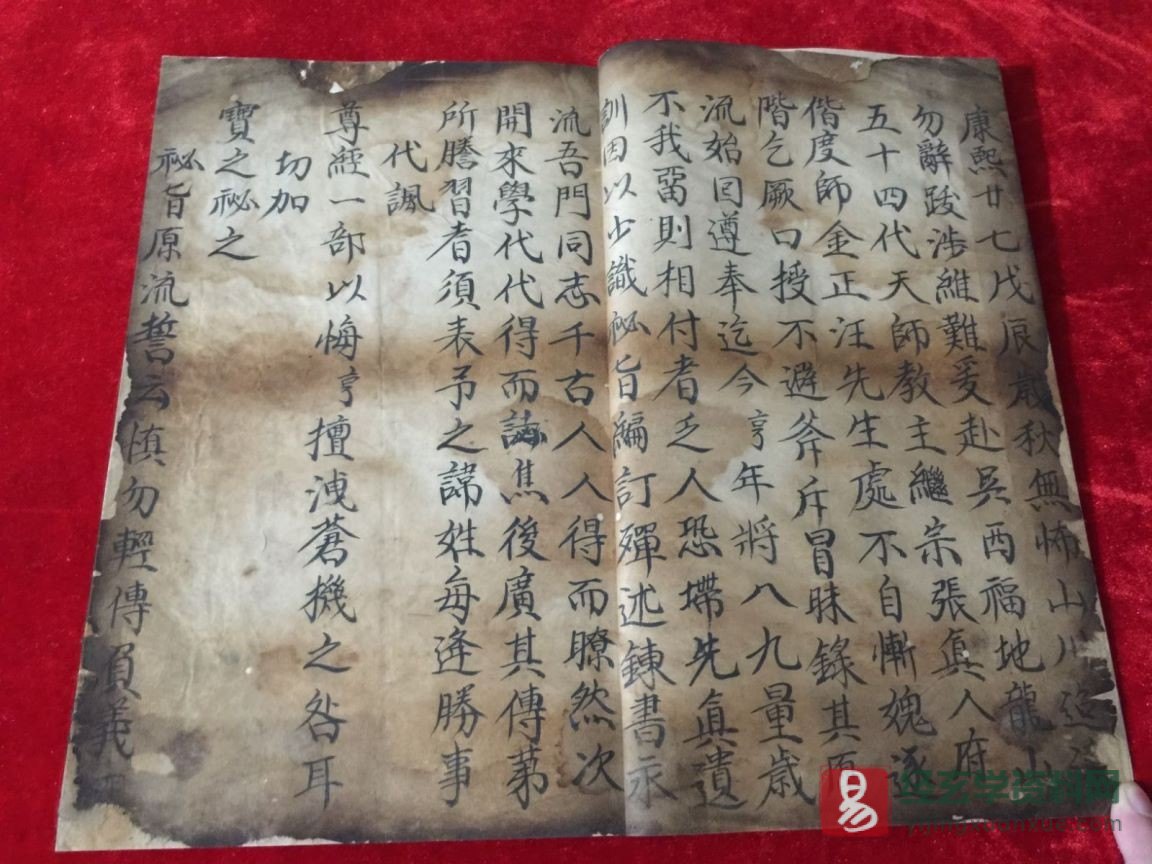 康熙廿七戊辰歲秋無怖山川
勿辭跋涉維難爰赴吳西福地龍山
五十四代天師教主繼宗張真人府
偕度師金正汪先生處不自慚媿逐
階乞厥口授不避斧斥冒昧錄其
流始囙遵奉迄今亨年將八九量歲
不我畱則相付者乏人恐墆先真遺
訓因以少識祕旨編訂殫述鍊書永
流吾門同志千古人人得而瞭然次
開來學代代得而焦後廣其傳苐
所謄習者須表予之諱姓每逢勝事
代諷
尊經一部以悔亨擅洩蒼機之咎耳
切加
寶之祕之
祕旨原流誓云慎勿輕傳負義
易
易玄学资料网